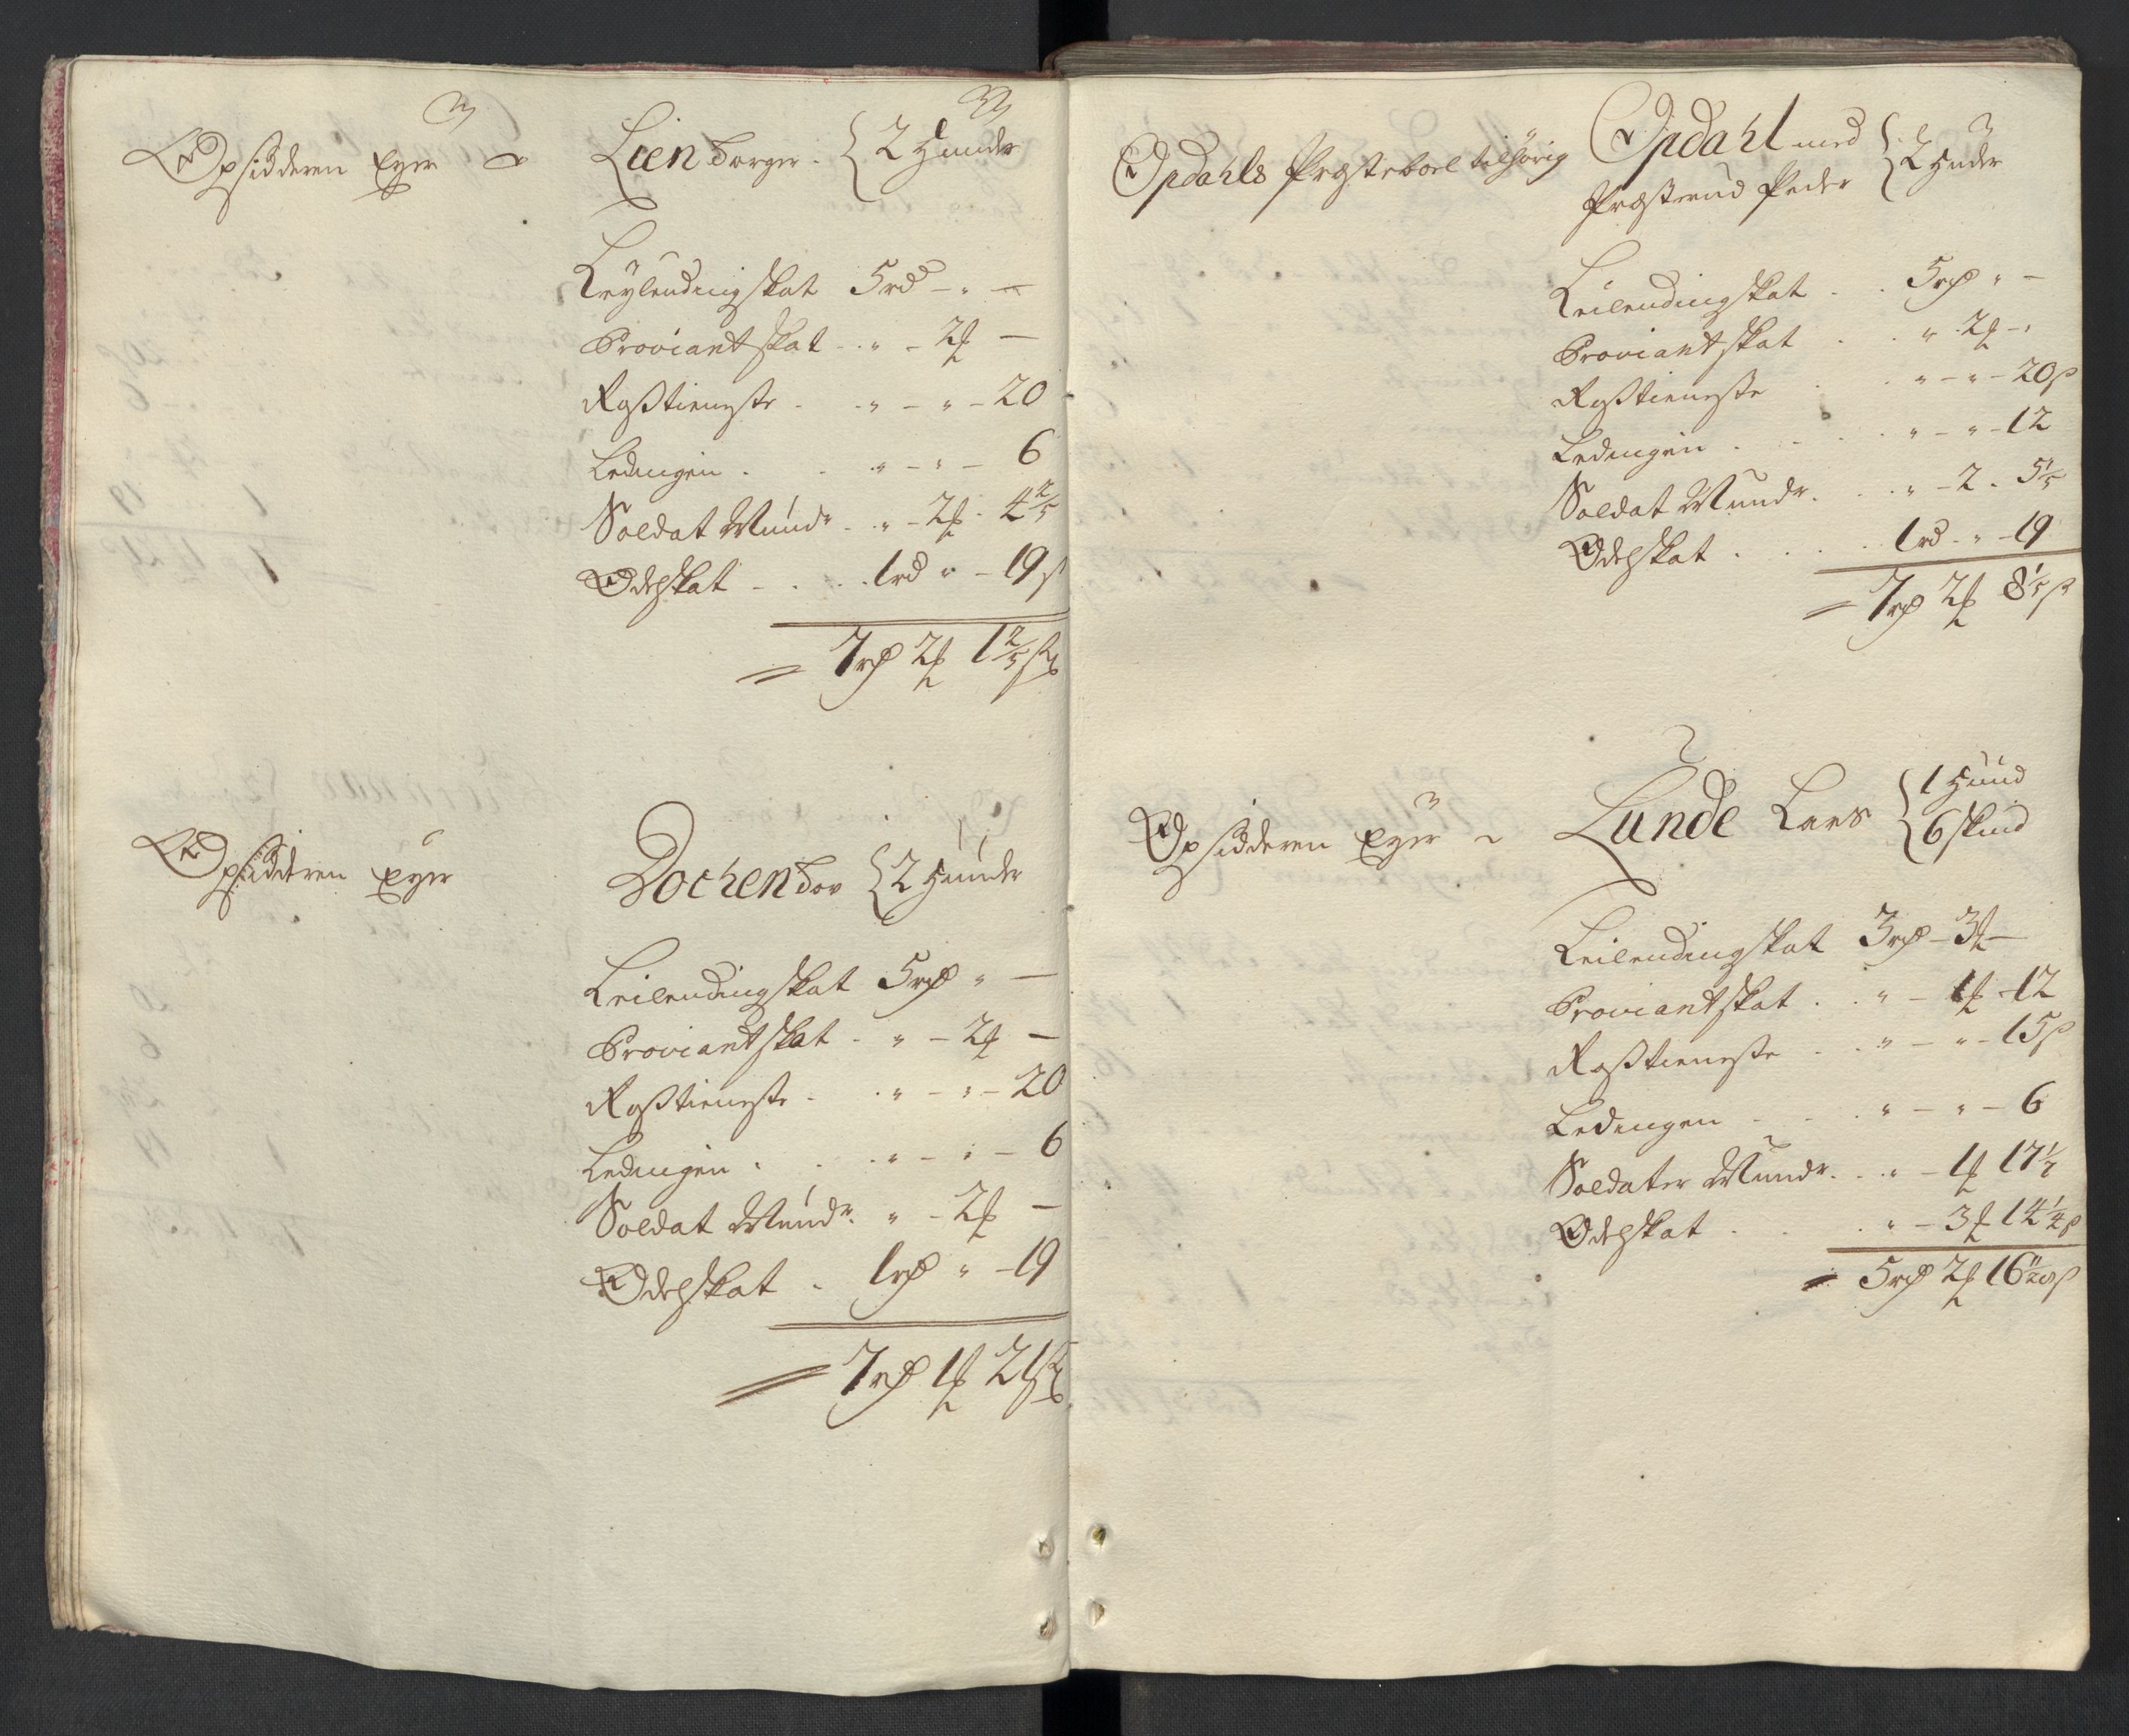 Opsidderen Eyer
Lien Borger. { 2 Hunder
Leylendingskat 5rd – " –
Proviantskat . . " – 2 ƒ –
Rosstieneste . . " – " – 20
Ledingen . . " – " – 6
Soldat Mundr. . " – 2 ƒ . 4 2/5
Odelskat – . . . 1rd " – 19 s
= 7 rd 2 ƒ 1 2/5 s
Opsidderen Eyer
Dochen Bov { 2 Hunder
Leilendingskat 5 rd " –
Proviantskat . " – 2 ƒ –
Rosstieneste . . " – " – 20
Ledingen . . . " – " – 6
Soldat Mundr. " – 2 ƒ –
Odelskat . 1 rd " – 19
= 7 rd 1 ƒ 21 s
Opdahls Præsteboel tilhørig
Opdahl med { 2 Huder
Præsterud Peder
Leilendingskat . . 5 rd " –
Proviantskat . . " 2 ƒ – "
Rosstieneste . . " – " – 20 s
Ledingen . . . . " – " – 12
Soldat Mundr. . . " – 2 . 5 1/5
Odelskat . . . . 1rd . " – 19
= 7 rd 2 ƒ 8 1/5 s
Opsidderen Eyer
Lunde Lars { 1 Huud
6 skind
Leilendingskat 3 rd – 3 ƒ –
Proviantskat . . " – 1 ƒ – 12
Rosstieneste . . " – " – 15 s
Ledingen . . . " – " – 6
Soldater Mundr. . " – 1 ƒ 17
Odelskat . . . " – 3 ƒ 14 1/4 s
= 5 rd 2 ƒ 16 11/20 s